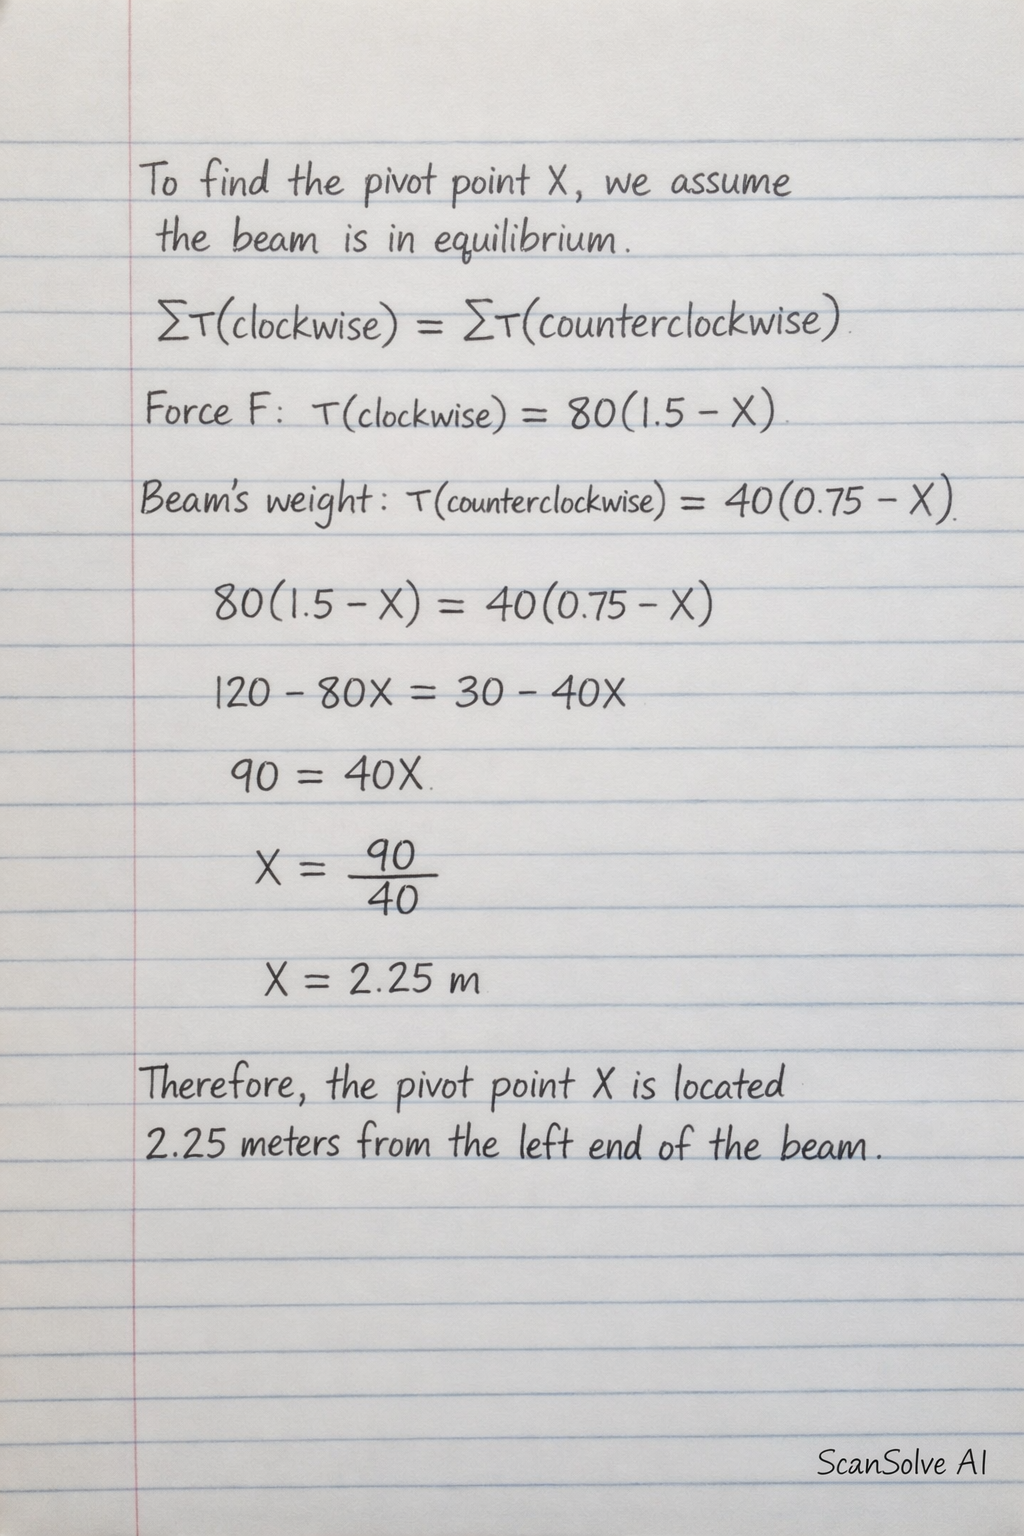 To find the pivot point X, we assume
the beam is in equilibrium.
ΣT(clockwise) = ΣT(counterclockwise).
Force F: T(clockwise) = 80(1.5 – X).
Beam's weight: T(counterclockwise) = 40(0.75 – X).
80(1.5 – X) = 40(0.75 – X)
120 – 80X = 30 – 40X
90 = 40X.
X = 90/40
X = 2.25 m
Therefore, the pivot point X is located
2.25 meters from the left end of the beam.
ScanSolve AI